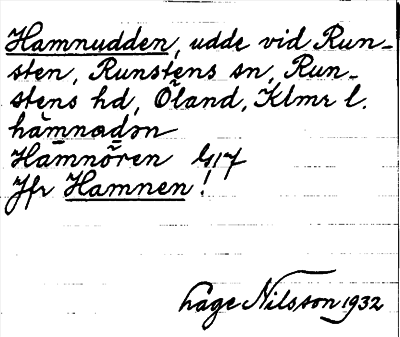 Hamnudden, udde vid Run-
sten, Runstens sn, Run-
stens hd, Öland, Klmr l.
hamnadən
Hamnören
Jfr Hamnen!
Håge Nilsson 1932